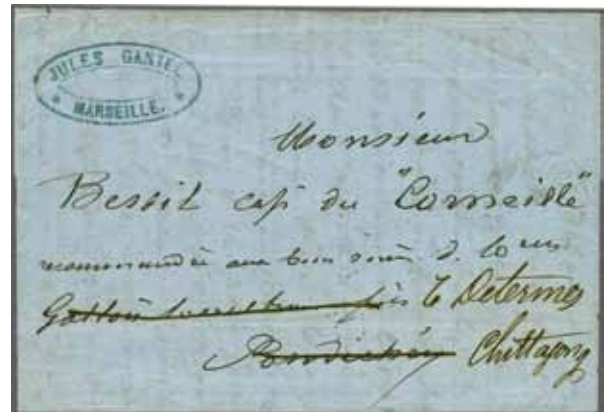 JULES GANTEL
MARSEILLE.
Monsieur
Bessil cap. du "Corneille"
recommandée aux bons soins de
E Determes
Pondichéry Chittagong